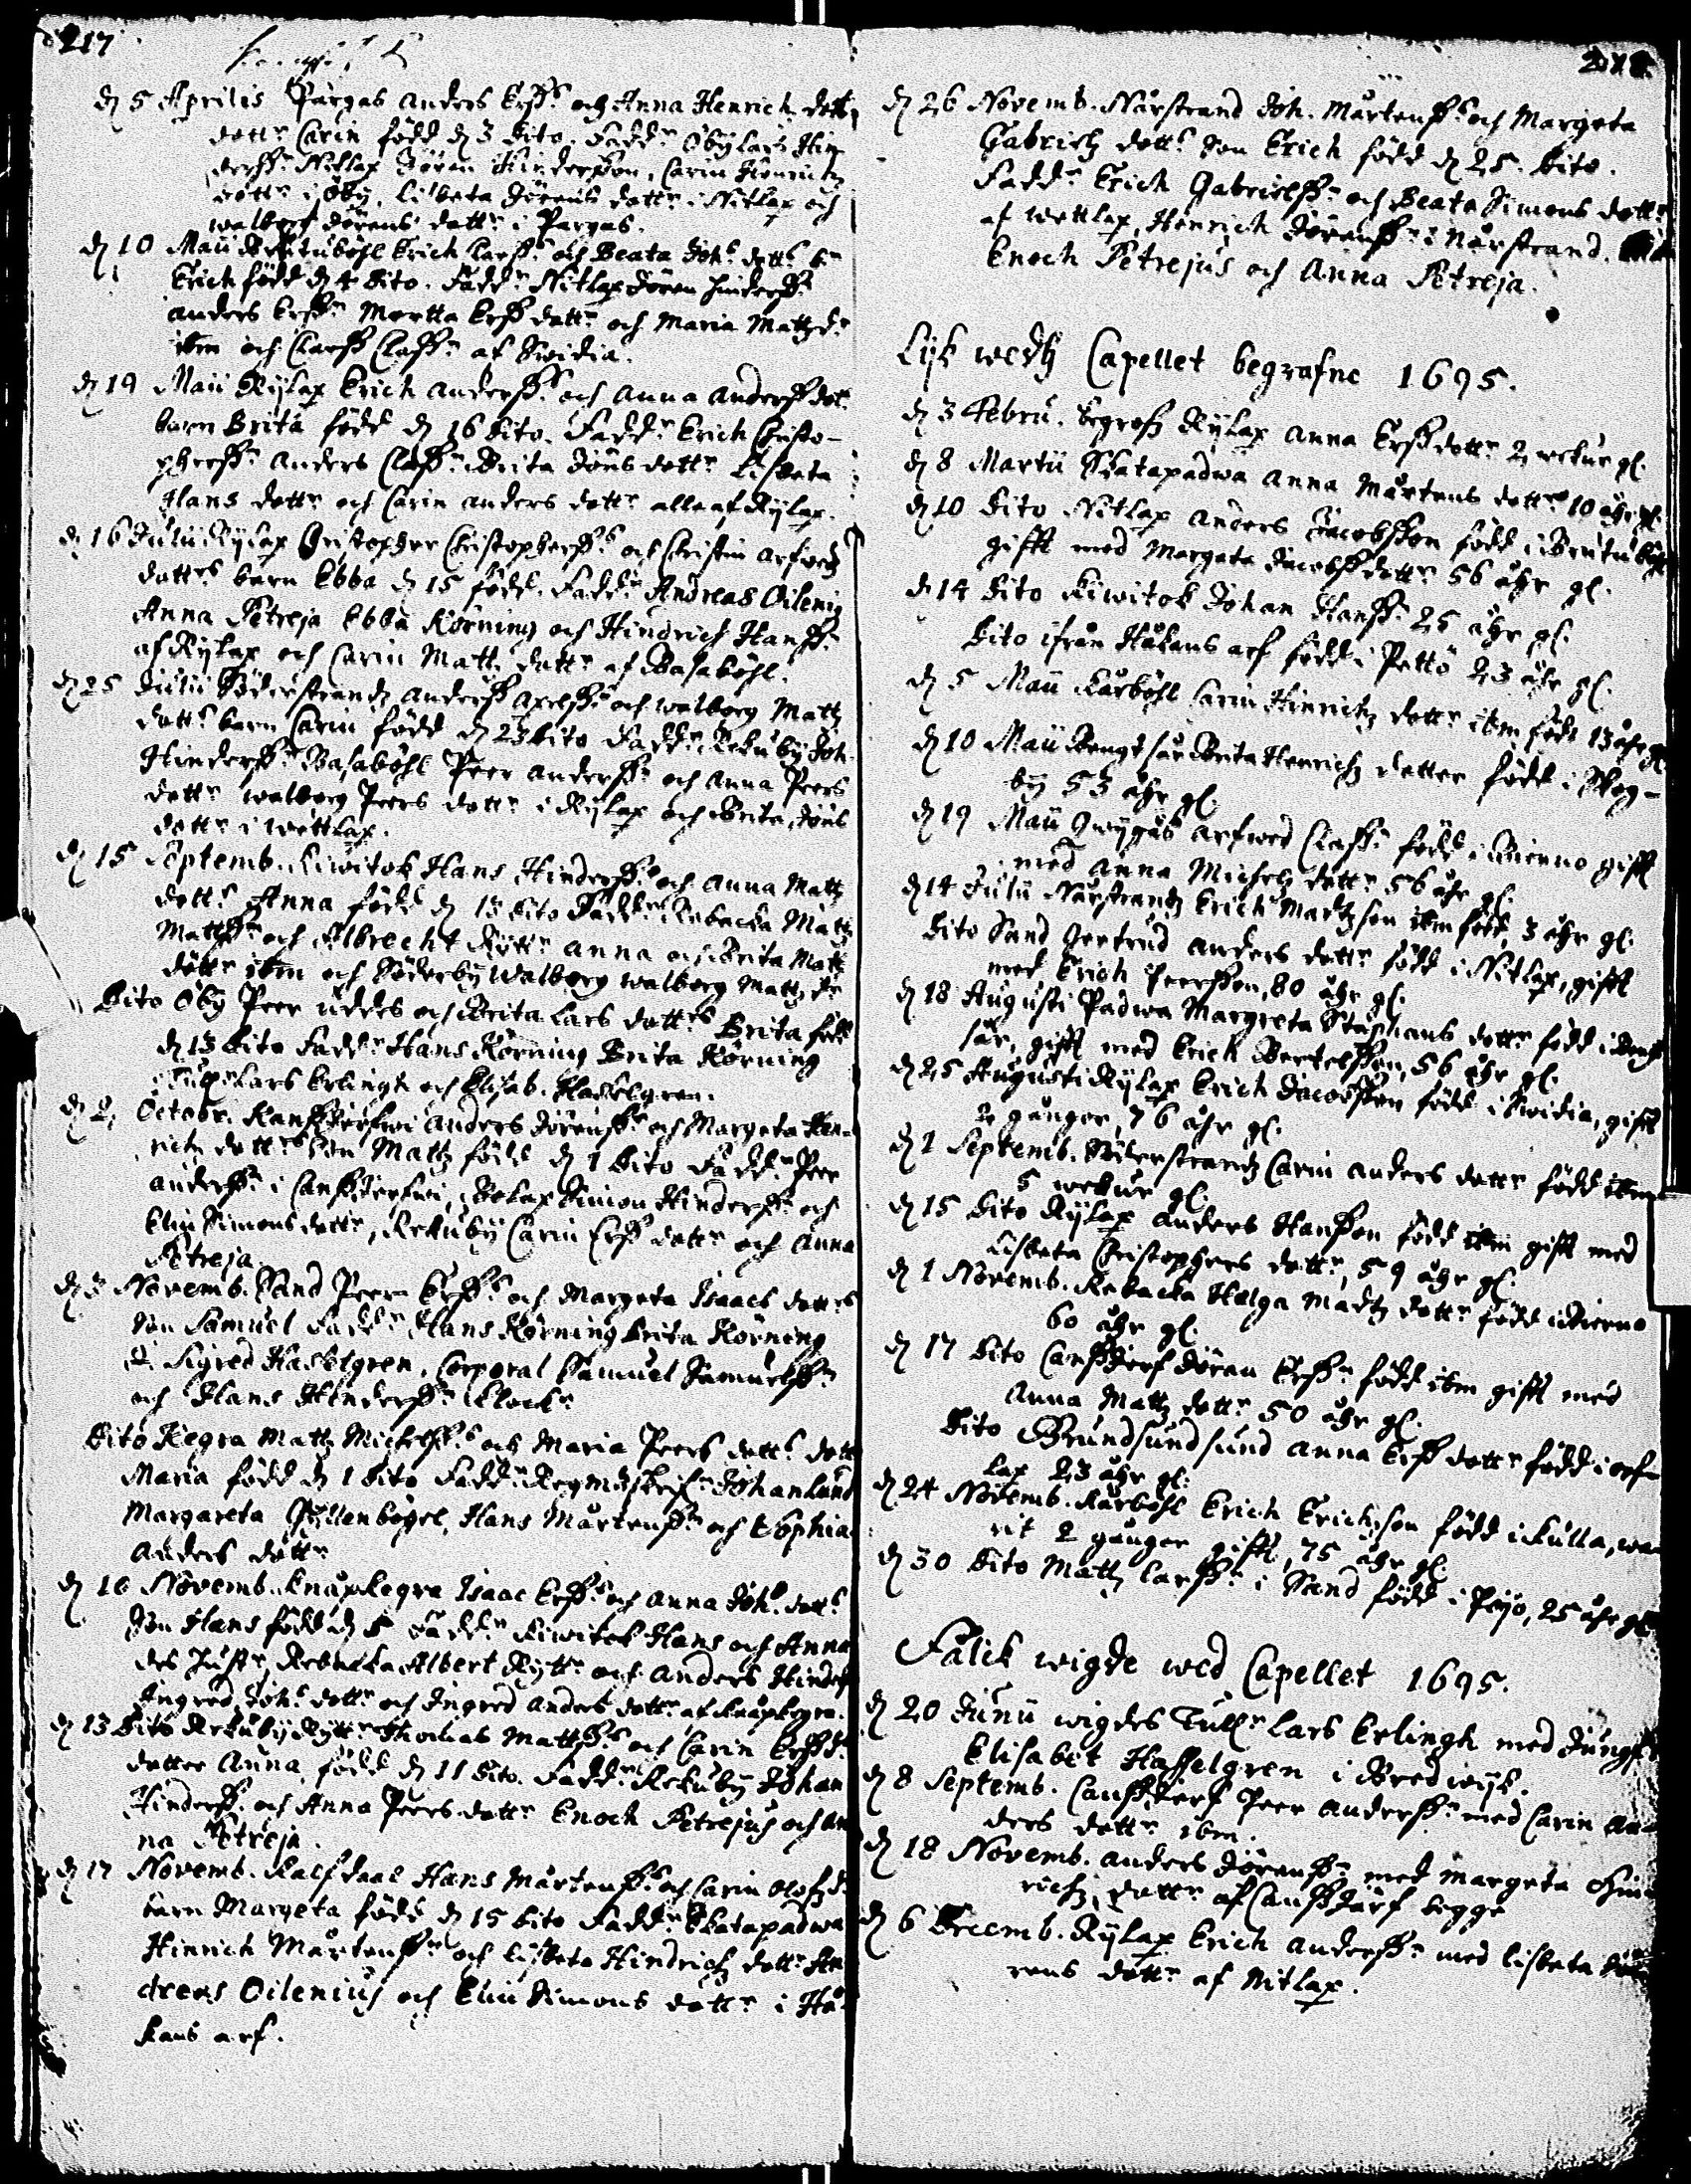 217
d 5 Aprilis Pargas Anders Erss.s och Anna Henrich dotts
dottr Carin född d 3 dito. Faddr Öby Lars Hin-
derssr Nitlax Jöran Hinderßon, Carin Henrichz
dottr i Öby, Lisbeta Jörans dottr i Nitlax och
walborg Jörans dottr i Pargas.
d 10 Maii Erich Larss.s och Beata Johs dotts
Erich född d 4 dito. Faddr Nitlax Jöran Hinderssr
Anders Erssr Martta Erss dottr och Maria Mattzdr
ibm och Clas Classr af Swidia.
d 19 Maii Rylax Erich Anderss.s och Anna Anders dotts
barn Brita född d 16 dito. Faddr Erich Christo-
pherssr Anders Classr Brita Jöns dottr Lisbeta
Hans dottr och Carin Anders dottr alla af Rylax.
d 16 Julii Rylax Christopher Christopherss.s och Christin Arfwedz
dotters barn Ebba d 15 född. Faddr Andreas Oileniq
Anna Petreja Ebba Körning och Hindrich Hanssr
af Rylax och Carin Mattz dottr af Basaböhl.
d 25 Julii Söderstrandz Anders Axelss.s och walborg Mattz
dotts barn Carin född d 23 dito Faddr Rekuby Joh.
Hinderssr Basaböhl Peer Anderssr och Anna Peers
dottr walborg Peers dottr i Rylax och Brita Jöns
dottr i wettlax.
d 15 Septemb. Kiwitok Hans Hinderss.s och Anna Mattz
dotts Anna född d 13 dito Faddr Rebacka Mattz
Mattssr och Albrecht Ryttr Anna och Brita Mattz
döttr ibm och Söderby walborg walborg Mattz dr
Dito Öby Peer Uddes och Brita Lars dotters Brita född
d 13 dito Faddr Hans Körning Brita Körning
Lars Erlingh och Elisab. Hasselgren.
d 2 Octobr. Kanssjerfwi Anders Jörenss.s och Margeta Hen-
richz dotters Son Mattz född d 1 dito Faddr Peer
Anderssr i Canssjerfwi, Bolax Simon Hinderssr och
Elin Simons dottr, Rekuby Carin Erss dottr och Anna
Petreja.
d 3 Novemb. Sand Peer Erss.s och Margeta Isaacs dotters
Son Samuel Faddr Hans Körning Brita Körning
Sigred Hasselgren, Corporal Samuel Samuelssr
och Hans Hinderssr Klockr
Dito Kegra Mattz Michelss.s och Maria Peers dotts dottr
Maria född d 1 dito Faddr Johan Lund
Margareta Gyllenbögel, Hans Mårtenssr och Sophia
Anders dottr
d 10 Novemb. Knapkegra Isaac Erss.s och Anna Johs dotts
Son Hans född d 5 Faddr Kiwitok Hans och Anna
des hustr, Rebacka Albert Ryttr och Anders Hinders
Ingred Johs dottr och Ingred Anders dottr af Knapkegra.
d 13 Dito Rekuby Ryttr Thomas Mattss.s och Carin Erss ds
dotter Anna född d 11 dito. Faddr Rekuby Johan
Hinderssr och Anna Peers dottr Enoch Petrejus och An
na Petreja.
d 17 Novemb. Kalfdaal Hans Mårtenss.s och Carin Olofz ds
barn Margeta född d 15 dito Faddr Skatapadwa
Hinrich Mårtenssr och Lisbeta Hindrichz dottr An
dreas Oilenius och Elin Simons dottr i Hå-
kans arf.
218
d 26 Novemb. Närstrand Joh. Mårtenss.s och Margeta
Gabrielz dotts Son Erich född d 25 dito.
Faddr Erich Gabrielssr och Beata Simons dottr
af wettlax, Henrich Jöranssr i Närstrand.
Enoch Petrejus och Anna Petreja.
Lijk wedh Capellet begrafne 1695.
d 3 Febru. begrofz Rylax Anna Erss dottr 2 wekur gl.
d 8 Martii Skatapadwa Anna Mårtens dottr 10 åhr gl.
d 10 dito Nitlax Anders Jacobßon född i
gifft med Margeta Jacobss dottr 56 åhr gl.
d 14 dito Kiwitok Johan Hanssr 25 åhr gl.
dito ifrån Håkans arf född i Pettö 23 åhr gl.
d 5 Maii Kårböhl Carin Hinrichz dottr ibm född 13 åhr gl
d 10 Maii Bengtsår Brita Henrichz dotter född i Skog-
by 53 åhr gl.
d 19 Maii Arfwed Classr född i Bierno gifft
med Anna Michelz dottr 56 åhr gl.
d 14 Julii Närstrandz Erich Madtz son ibm född, 3 åhr gl.
Dito Sand Gertrud Anders dottr född i Nitlax, gifft
med Erich Peersson, 80 åhr gl.
d 18 Augusti Padwa Margreta Staphans dottr född i Bengt
sår, gifft med Erich Bertelßon, 56 åhr gl.
d 25 Augusti Rylax Erich Jacobßon född i Swidia, gifft
2 gånger, 76 åhr gl.
d 1 Septemb. Söderstrandz Carin Anders dottr född ibm
5 wekur gl.
d 15 dito Rylax Anders Hanßon född ibm gifft med
Lisbeta Christophers dottr, 59 åhr gl.
d 1 Novemb. Rebacka Halga Madtz dottr född i Bierno
60 åhr gl.
d 17 dito Canssjerf Jöran Erssr född ibm gifft med
Anna Mattz dottr 50 åhr gl.
dito Grundsundsund Anna Erss dottr född i
lax 23 åhr gl.
d 24 Novemb. Kårböhl Erich Erichson född i Kulla, wa-
rit 2 gånger gifft, 75 åhr gl.
d 30 dito Mattz Larssr i Sand född i Pojo, 25 åhr gl
Fålck wigde wed Capellet 1695.
d 20 Junii wigdes Tullr Lars Erlingh med Jungfr
Elisabet Hasselgren i Bredwijk.
d 8 Septemb. Canssjerf Peer Anderssr med Carin An-
ders dottr ibm.
d 18 Novemb. Anders Jöranssr med Margeta Hin-
richz dottr af Canssjärf begge
d 6 Decemb. Rylax Erich Anderssr med Lisbeta Jö-
rens dottr af Nitlax.